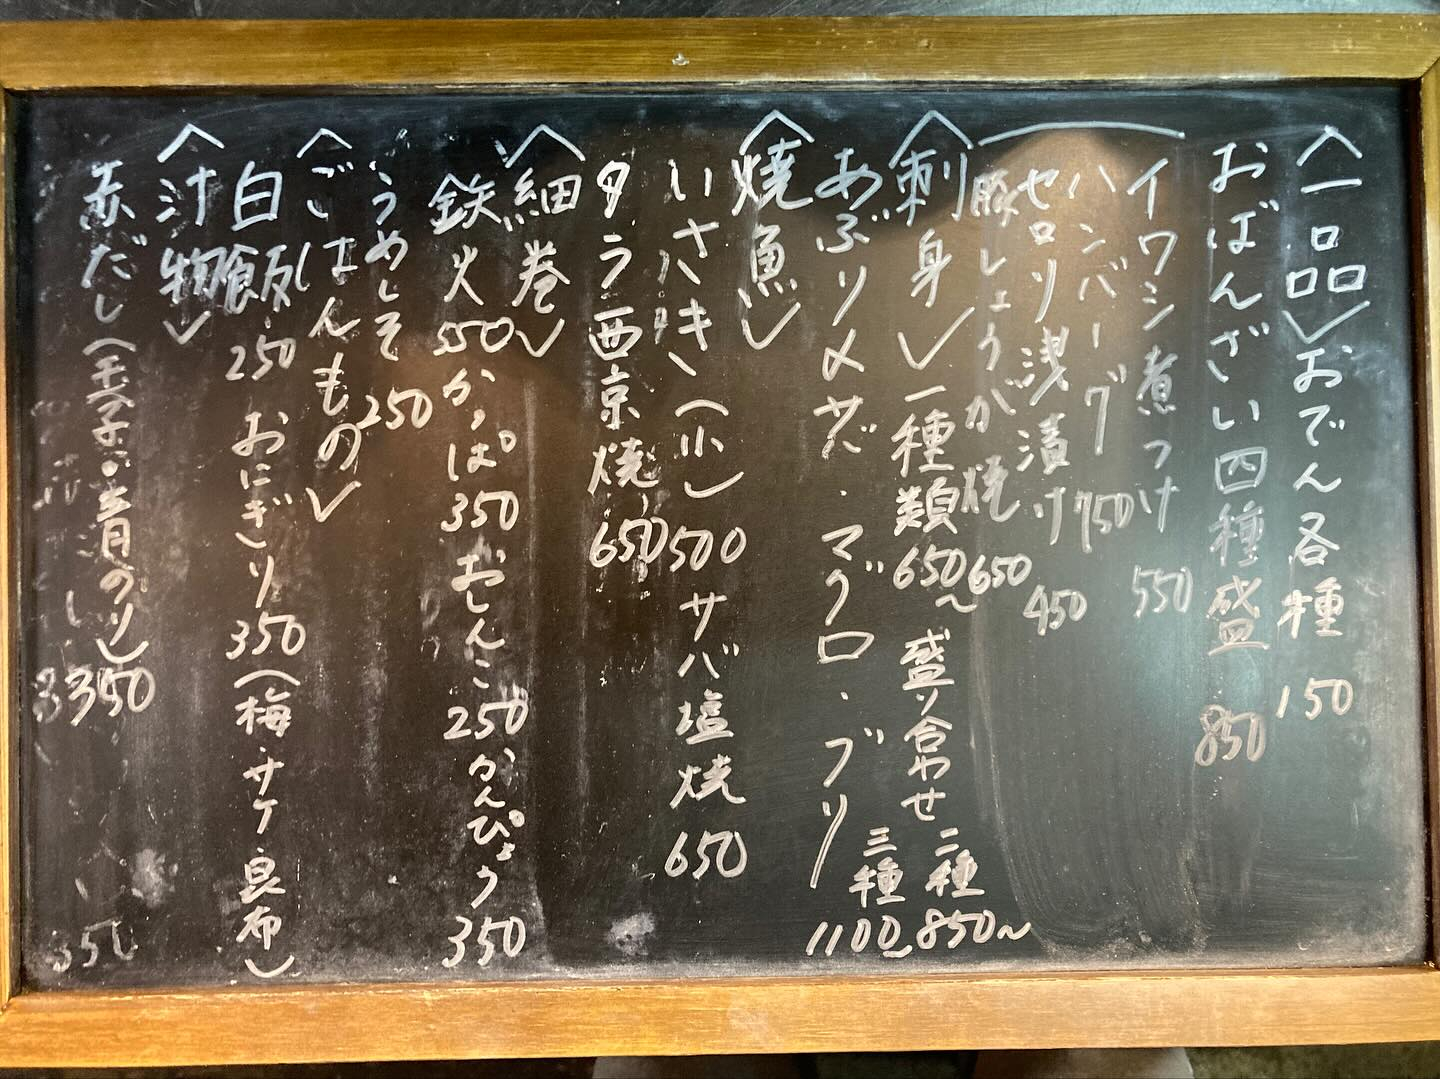 〈一品〉おでん各種 150
おばんざい四種盛 850
イワシ煮つけ 550
ハンバーグ 750
セロリ浅漬け 450
豚しょうが焼 650
〈刺身〉一種類650〜 盛り合わせ 二種850〜 三種1100〜
あぶりメサバ・マグロ・ブリ
〈焼魚〉
いさき(小)500 サバ塩焼650
タラ西京焼650
〈細巻〉
鉄火550 かっぱ350 おしんこ250 かんぴょう350
うめしそ250
〈ごはんもの〉
白飯250 おにぎり350(梅・サケ・昆布)
〈汁物〉
赤だし(玉子・青のり)350